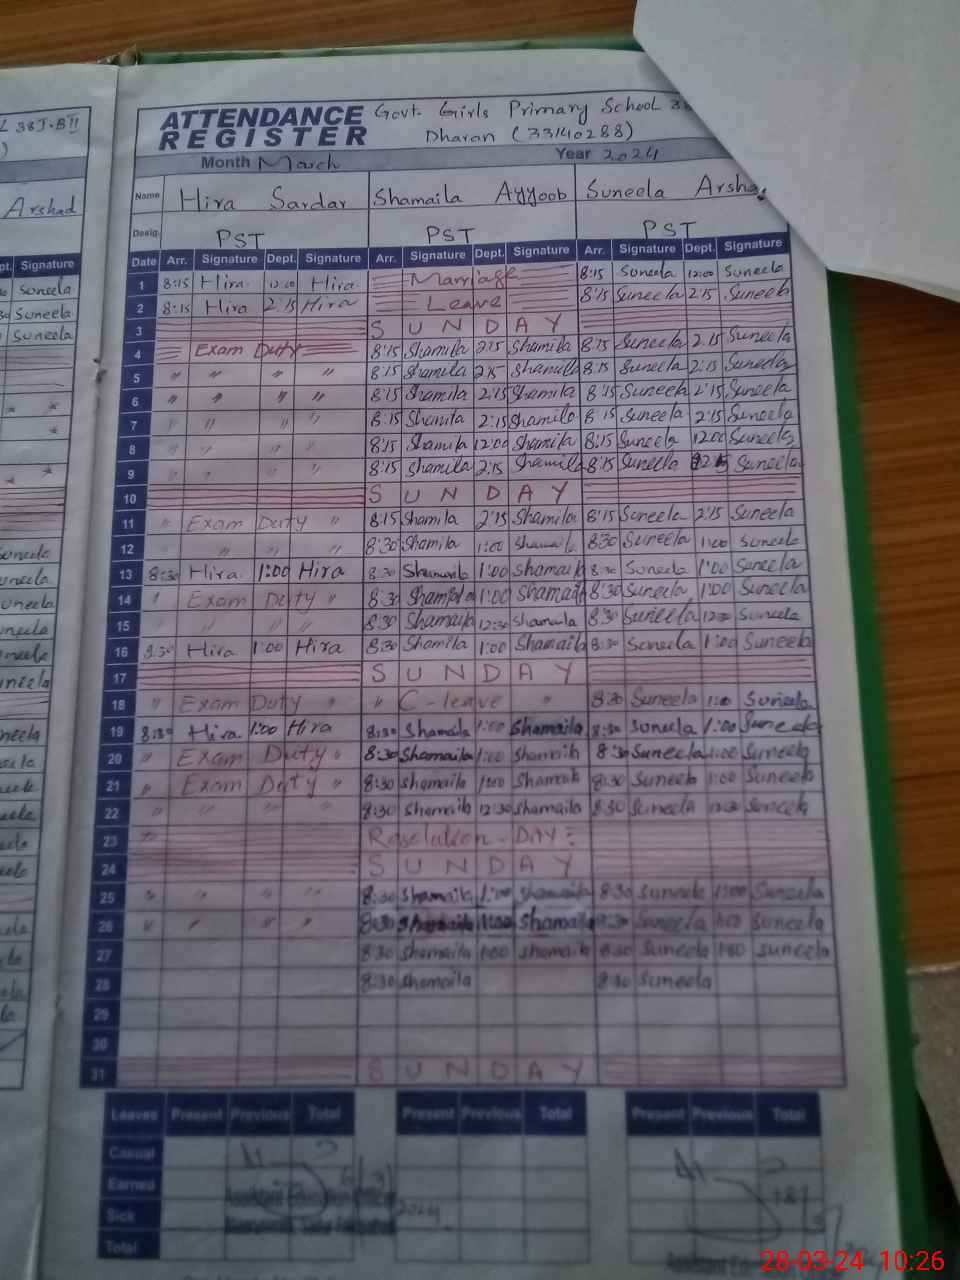 ATTENDANCE REGISTER
Govt. Girls Primary School
Dharan (33140288)
Month March Year 2024
Name Hira Sardar Shamaila Ayyoob Suneela
Desig. PST PST PST
Date Arr. Signature Dept. Signature Arr. Signature Dept. Signature Arr. Signature Dept. Signature
1 8:15 Hira 12:00 Hira Marriage 8:15 Suneela 12:00 Suneela
2 8:15 Hira 2:15 Hira Leave 8:15 Suneela 2:15 Suneela
3 SUNDAY
4 Exam Duty 8:15 Shamila 2:15 Shamila 8:15 Suneela 2:15 Suneela
5 " " " " 8:15 Shamila 2:15 Shamila 8:15 Suneela 2:15 Suneela
6 " " " " 8:15 Shamila 2:15 Shamila 8:15 Suneela 2:15 Suneela
7 " " " " 8:15 Shamila 2:15 Shamila 8:15 Suneela 2:15 Suneela
8 " " " " 8:15 Shamila 12:00 Shamila 8:15 Suneela 12:00 Suneela
9 " " " " 8:15 Shamila 2:15 Shamila 8:15 Suneela Suneela
10 SUNDAY
11 " Exam Duty " 8:15 Shamila 2:15 Shamila 8:15 Suneela 2:15 Suneela
12 " " " " 8:30 Shamila 1:00 Shamaila 8:30 Suneela 1:00 Suneela
13 8:30 Hira 1:00 Hira 8:30 Shamaila 1:00 Shamaila 8:30 Suneela 1:00 Suneela
14 " Exam Duty " 8:30 Shamaila 1:00 Shamaila 8:30 Suneela 1:00 Suneela
15 " " " " 8:30 Shamaila 12:30 Shamaila 8:30 Suneela 12:30 Suneela
16 8:30 Hira 1:00 Hira 8:30 Shamila 1:00 Shamaila 8:30 Suneela 1:00 Suneela
17 SUNDAY
18 " Exam Duty " " C-leave " 8:30 Suneela 1:00 Suneela
19 8:30 Hira 1:00 Hira 8:30 Shamaila 1:00 Shamaila 8:30 Suneela 1:00 Suneela
20 " Exam Duty " 8:30 Shamaila 1:00 Shamaila 8:30 Suneela 1:00 Suneela
21 " Exam Duty " 8:30 Shamaila 1:00 Shamaila 8:30 Suneela 1:00 Suneela
22 " " " " 8:30 Shamaila 12:30 Shamaila 8:30 Suneela 12:30 Suneela
23 Resolution-DAY
24 SUNDAY
25 " " " " 8:30 Shamaila 1:00 Shamaila 8:30 Suneela 1:00 Suneela
26 " " " " 8:30 Shamaila 1:00 Shamaila 8:30 Suneela 1:00 Suneela
27 8:30 Shamaila 1:00 Shamaila 8:30 Suneela 1:00 Suneela
28 8:30 Shamaila 8:30 Suneela
29
30
31 SUNDAY
Leaves Present Previous Total Present Previous Total Present Previous Total
Casual
Earned
Sick
Total
28-03-24 10:26